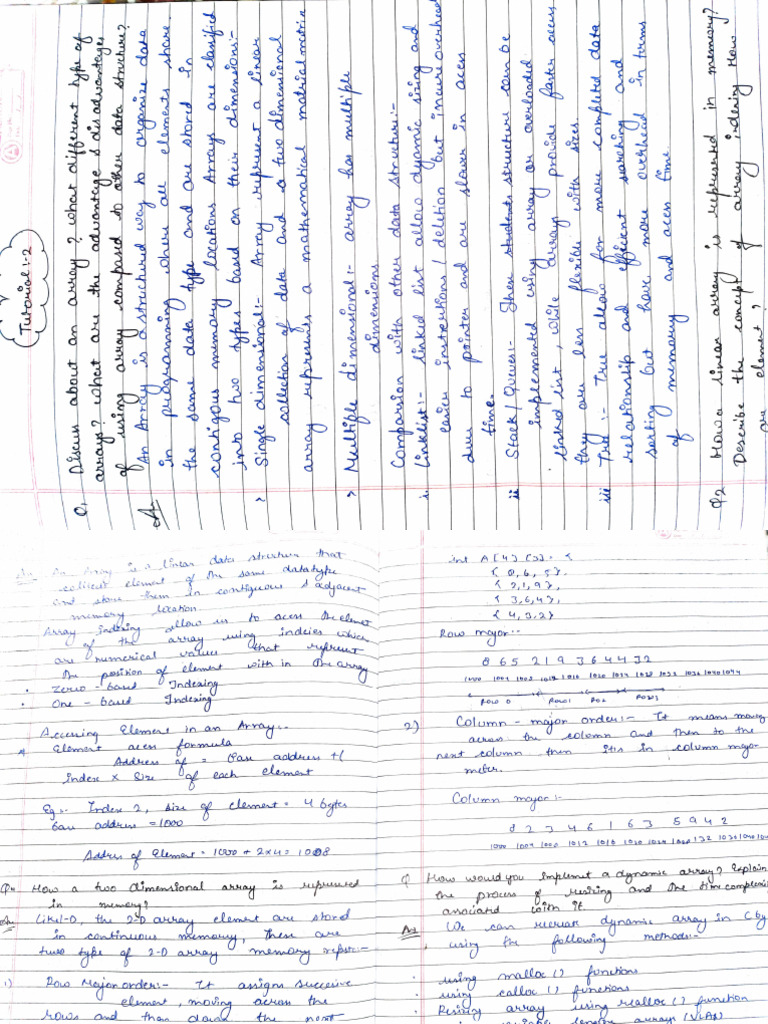 Tutorial :- 2
Q1 Discuss about an array? what different type of
arrays? what are the advantage & disadvantages
of using array compased to other data structure?
A. An Array is a structured way to organize data
in programming where all elements share
the same data type and are stored in
contigous memory locations Arrays are classified
into two types based on their dimensions:-
> Single dimensional:- Array represent a linear
collection of data and a two dimensional
array represents a mathematical matrix
> Multiple dimensional:- array has multiple
dimensions.
Comparsion with other data structure:-
i. Linklist:- linked list allow dynamic sizing and
easier insertions/deletion but incure overhead
due to pointer and are slower in acess
time.
ii Stack/Queues:- These students structure can be
implemented using array or overloaded
linked list, while arrays provide faster access
they are less flexible with sizes.
iii Tree:- Tree allow for more completed data
relationship and efficient searching and
sorting but have more overhead in terms
of memory and acess time.
Q2 How a linear array is represented in memory?
Describe the concept of array indexing How
are element,
Ans An Array is a linear data structure that
collect element of the same datatype
and store them in contiguous & adjacent
memory location.
Array indexing allow us to acess the element
of the array using indcies which
are numerical values that represent
the position of element with in the array
• Zero - based Indexing
• One - based Indexing
Accessing Element in an Array:-
* Element acess formula
Address of = Base address + (
index x Size of each element
Eg:- Index 2, size of element = 4 bytes
base address = 1000
Addres of Element = 1000 + 2x4 = 1008
Q4 How a two dimensional array is represented
in memory?
Ans Like 1-D, the 2-D array element are stored
in continuous memory, There are
two type of 2-D array memory repst:-
1) Row Major order:- It assigns successive
element, moving across the
rows and then down the next
int A [4] [3] = {
{ 8, 6, 5 },
{ 2, 1, 9 },
{ 3, 6, 4 },
{ 4, 3, 2 }
Row major:-
8 6 5 2 1 9 3 6 4 4 3 2
1000 1004 1008 1012 1016 1020 1024 1028 1032 1036 1040 1044
Row 0 Row1 Ro2 Row3
2) Column - major order:- It means moving
across the colomn and then to the
next column then its in column major
meter.
Column major:-
8 2 3 4 6 1 6 3 5 9 4 2
Q How would you implement a dynamic array? Explain
the process of resizing and the time complexity
associated with it
Ans We can recreate dynamic array in C by
using the following methods:-
• using malloc () functions
• using calloc () functions
• Resizing array using realloc () function
length arrays (VLAs)